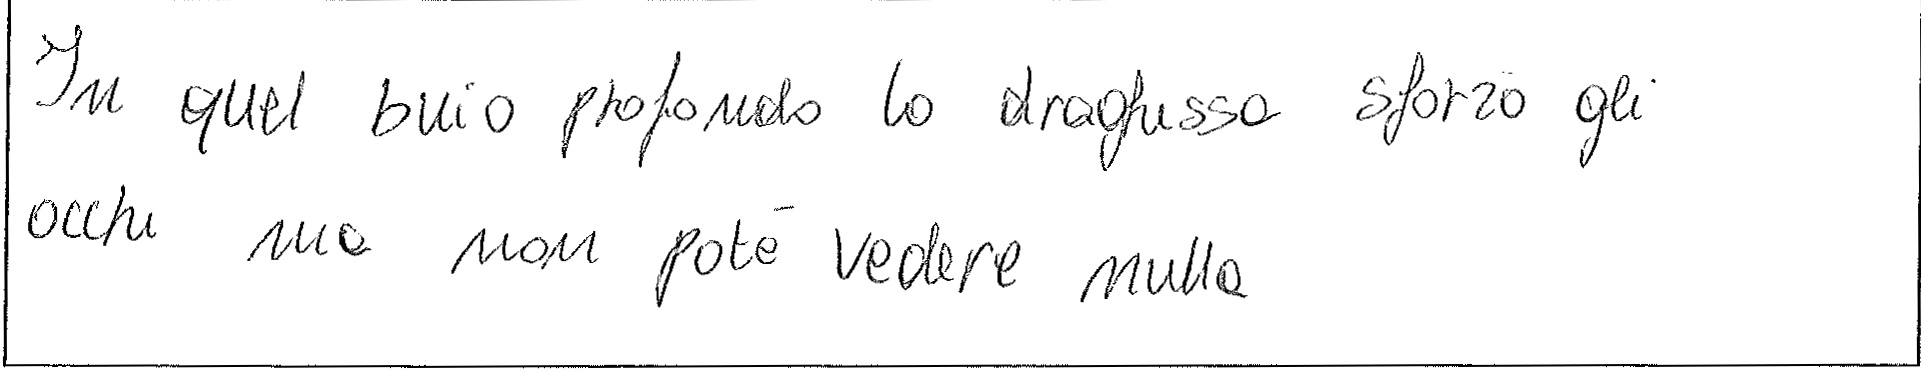 In quel buio profondo lo draghessa sforzò gli
occhi ma non poté vedere nulla